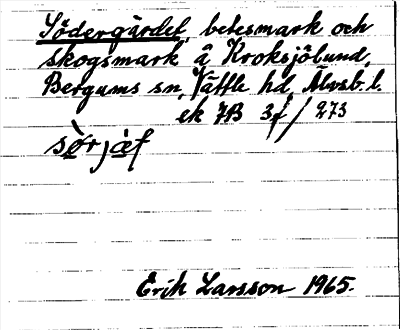 Södergärdet, betesmark och
skogsmark å Kroksjölund,
Bergums sn, Vättle hd, Älvsb. l.
ek 7B 3f / 273
sø̀rjæf
Erik Larsson 1965.